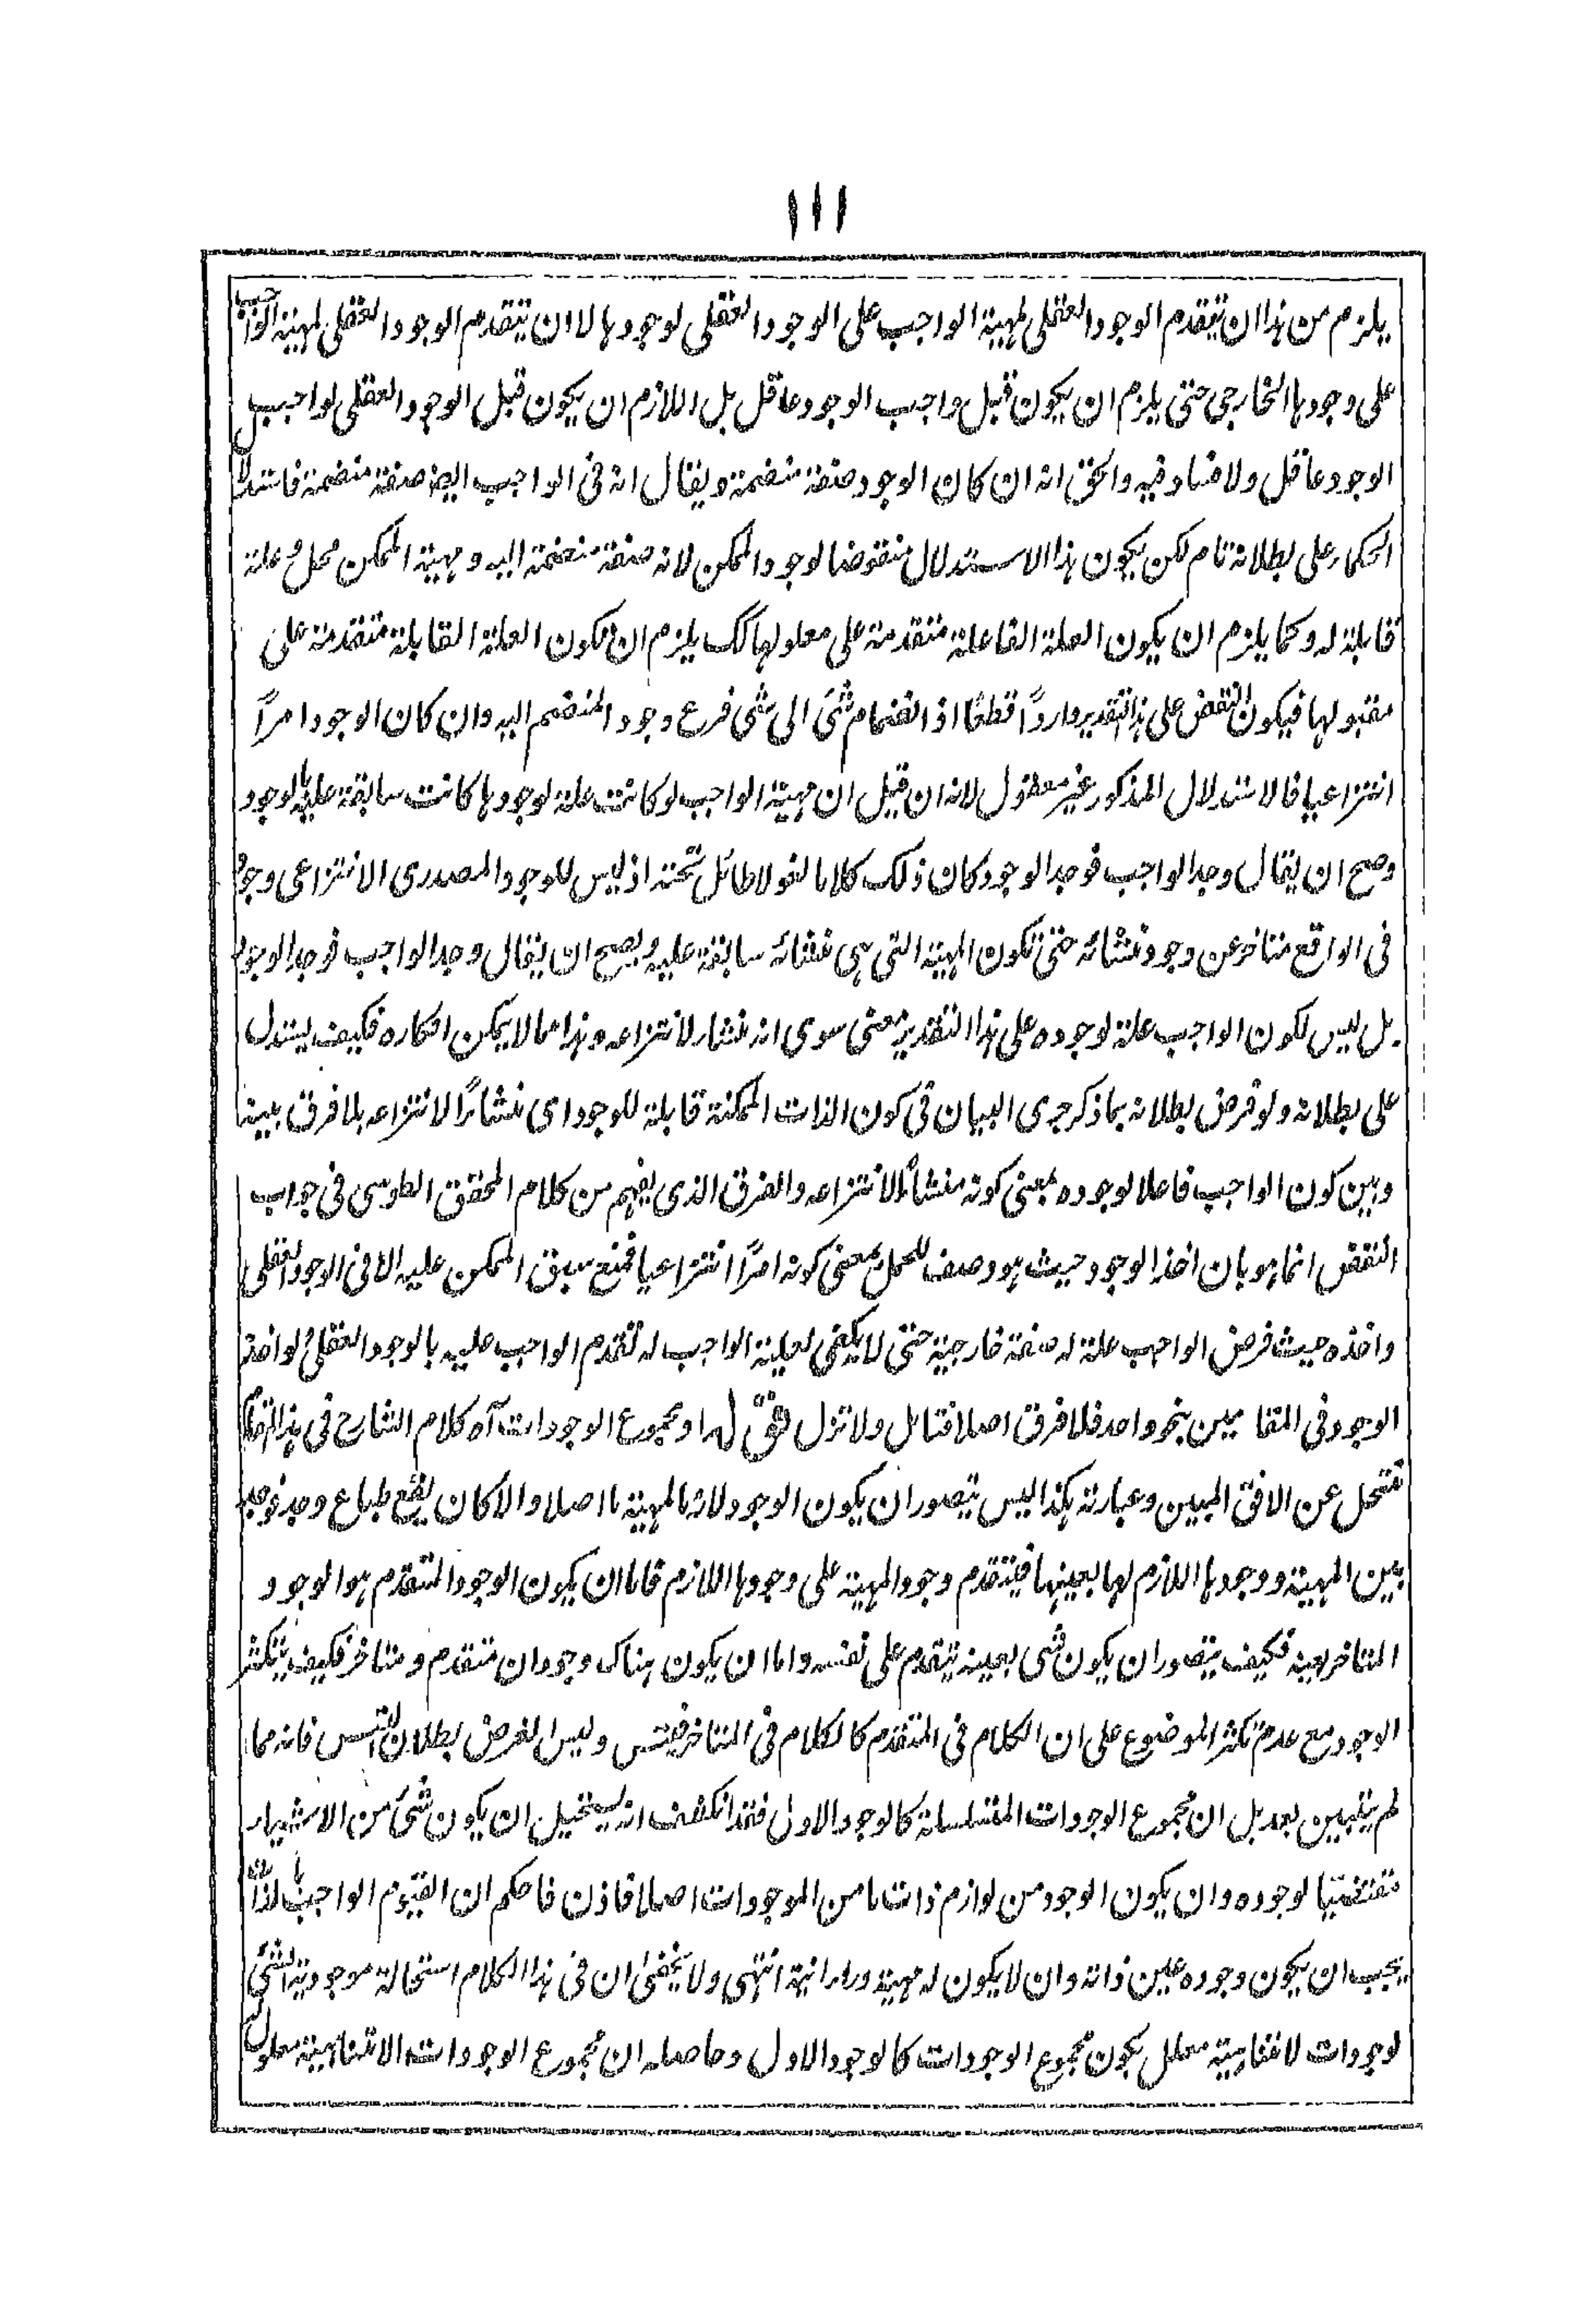 ١١١
يلزم من هذا ان يتقدم الوجود العقلى لمهية الواجب على الوجود العقلى لوجودها لا ان يتقدم الوجود العقلى لمهية الواجب
على وجودها الخارجى حتى يلزم ان يكون قبل واجب الوجود عاقل بل اللازم ان يكون قبل الوجود العقلى لواجب
الوجود عاقل ولا فساد فيه والحق انه ان كان الوجود صفة منضمة ويقال انه فى الواجب ايضا صفة منضمة فاستدلال
الحكماء على بطلانه تام لكن يكون هذا الاستدلال منقوضا لوجود الممكن لانه صفة منضمة اليه ومهية الممكن محل وعلة
قابلة له وكما يلزم ان يكون العلة الفاعلة متقدمة على معلولها كك يلزم ان تكون العلة القابلة متقدمة على
مقبولها فيكون النقض على هذا التقدير واردًا قطعًا اذ انضمام شئ الى شئ فرع وجود المنضم اليه وان كان الوجود امرًا
انتزاعيا فالاستدلال المذكور غير معقول لانه ان قيل ان مهية الواجب لو كانت علة لوجودها كانت سابقة عليه بالوجود
وصح ان يقال وجد الواجب فوجد الوجود كان ذلك كلاما لغو لا طائل تحته اذ ليس للوجود المصدرى الانتزاعى وجود
فى الواقع متاخر عن وجود منشائه حتى تكون المهية التى هى منشائه سابقة عليه ويصح ان يقال وجد الواجب فوجد الوجود
بل ليس لكون الواجب علة لوجوده على هذا التقدير معنى سوى انه منشار لانتزاعه وهذا مما لا يمكن انكاره فكيف يستدل
على بطلانه ولو فرض بطلانه بما ذكر جرى البيان فى كون الذات الممكنة قابلة للوجود اى منشائًا لانتزاعه بلا فرق بينه
وبين كون الواجب فاعلا لوجوده بمعنى كونه منشأ لانتزاعه والفرق الذى يفهم من كلام المحقق الطوسى فى جواب
النقض انما هو بان اخذ الوجود حيث هو وصف للمحل بمعنى كونه امرًا انتزاعيا فمنع سبق الممكن عليه الا فى الوجود العقلى
واخذه حيث فرض الواجب علة له صفة خارجية حتى لا يكفى لعلية الواجب له تقدم الواجب عليه بالوجود العقلى ولو اخذ
الوجود فى المقامين بنحو واحد فلا فرق اصلا فتامل ولا تزل قوله او مجموع الوجودات آه كلام الشارح فى هذا المقام
منتحل عن الافق المبين وعبارته هكذا ليس يتصور ان يكون الوجود لازما لمهية ما اصلا والا كان يقع طباع وجد فوجد
بين المهية ووجودها اللازم لها بعينها فيتقدم وجود المهية على وجودها اللازم فاما ان يكون الوجود المتقدم هو الوجود
المتاخر بعينه فكيف يتصور ان يكون شى بعينه يتقدم على نفسه واما ان يكون هناك وجودان متقدم ومتاخر فكيف يتكثر
الوجود مع عدم تكثر الموضوع على ان الكلام فى المتقدم كالكلام فى المتاخر فيتسـ وليس الغرض بطلان التسـ فانه مما
لم يتبين بعد بل ان مجموع الوجودات المتسلسلة كالوجود الاول فقد انكشف انه يستحيل ان يكون شئ من الاشياء
مقتضيا لوجوده وان يكون الوجود من لوازم ذات ما من الموجودات اصلا فاذن فاحكم ان القيوم الواجب بالذات
يجب ان يكون وجوده عين ذاته وان لا يكون له مهية وراء انية انتهى ولا يخفى ان فى هذا الكلام استحالة موجودية الشئ
لوجودات لا متناهية معلل بكون مجموع الوجودات كالوجود الاول وحاصله ان مجموع الوجودات اللامتناهية معلول